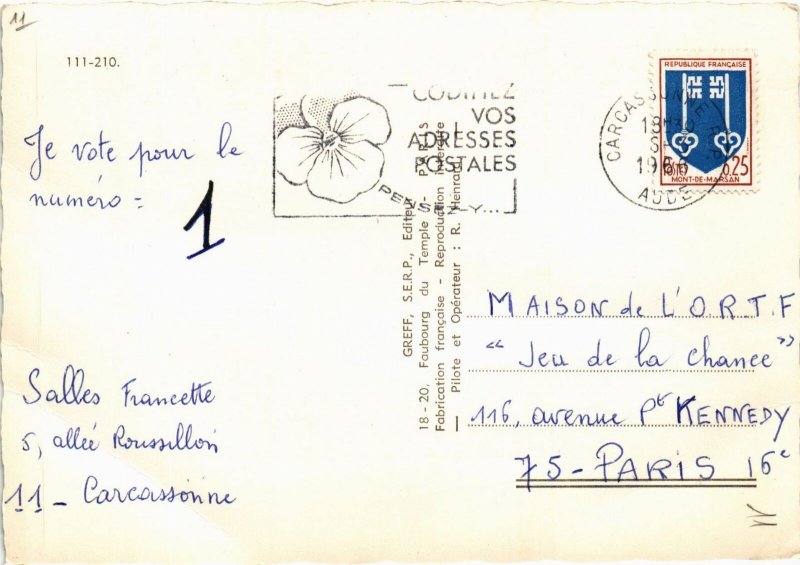 11
111-210.
CODIFIEZ
VOS
ADRESSES
POSTALES
PENSEZ-Y...
CARCASSONNE
18H
1966
AUDE
REPUBLIQUE FRANÇAISE
POSTES 0,25
MONT-DE-MARSAN
Je vote pour le
numéro = 1
GREFF, S.E.R.P., Editeur
18 - 20, Faubourg du Temple - PARIS
Fabrication française - Reproduction interdite
Pilote et Opérateur : R. Henrard
MAISON de L'O.R.T.F
" Jeu de la chance "
116, avenue Pt KENNEDY
75 - PARIS 16e
Salles Francette
5, allée Roussillon
11 - Carcassonne